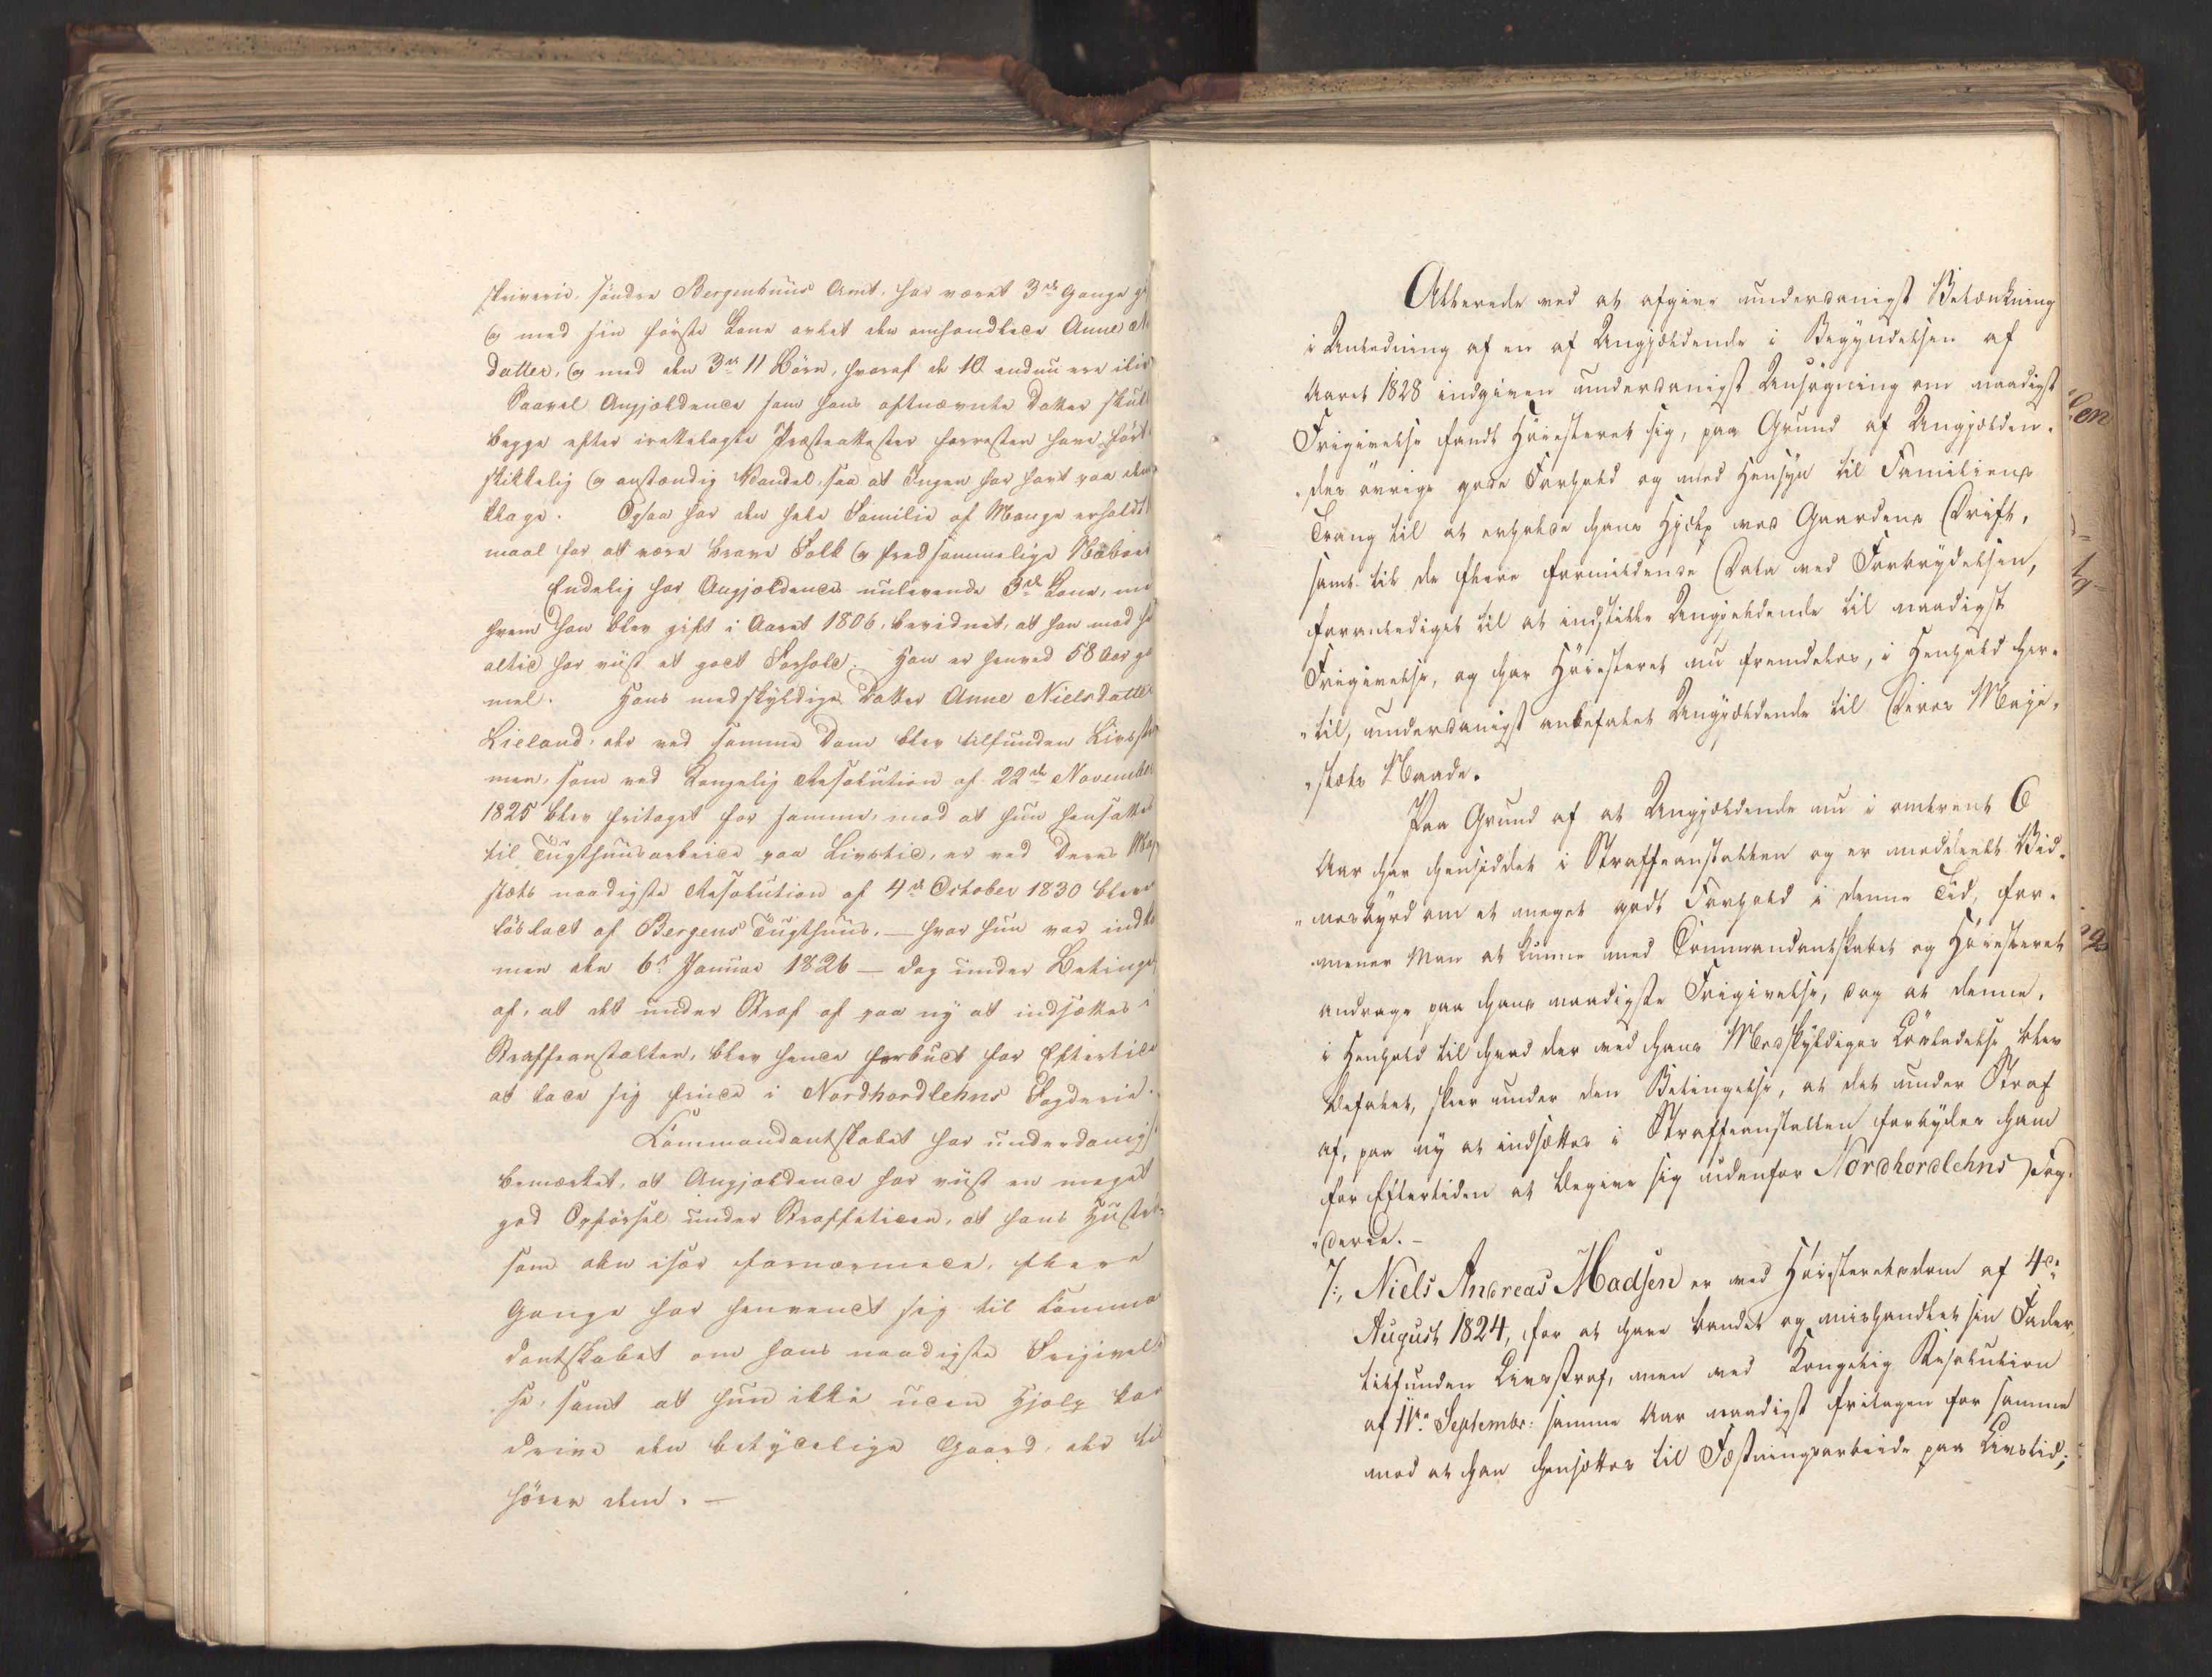 skriverie, söndre Bergenhuus Amt, har været 3de Gange g
og med sin förste Kone avlet den omhandlede Anne N
datter, og med den 3die 11 Börn, hvoraf de 10 endnu ere ilive
Saavel Angjældende som hans oftnævnte Datter skul
begge efter irettelagte Præsteattester forresten have fört
skikkelig og anstændig Vandel, saa at Ingen har havt paa dem
klage. Ogsaa har den hele Familie af Mange erholdt
maal for at være brave Folk og fredsommelige Naboer
Endelig har Angjældendes nulevende 3die Kone, me
hvem han blev gift i Aaret 1806, bevidnet, at han mod h
altid har viist et godt Forhold. Han er henved 58 Aar ga
mel. Hans medskyldige Datter Anne Nielsdatter
Lieland, der ved samme Dom blev tilfunden Livsstr
men, som ved Kongelig Resolution af 22de November
1825 blev fritaget for samme, mod at hun hensattes
til Tugthuusarbeide paa Livstid, er ved Deres Maj
stæts naadigste Resolution af 4de October 1830 bleven
lösladt af Bergens Tugthuus, — hvor hun var indk
men den 6te Januar 1826 — dog under Betingel
af, at det under Straf af paa ny at indsættes i
Straffeanstalten, blev hende forbudt for Eftertide
at lade sig finde i Nordhordlehns Fogderie.
Kommandantskabet har underdanigst
bemærket, at Angjældende har viist en meget
god Opförsel under Straffetiden, at hans Hustru
som den især fornærmede, flere
Gange har henvendt sig til Komma
dantskabet om hans naadigste Frigivel
se, samt at hun ikke uden Hjelp kan
drive den betydelige Gaard, der til
hörer dem. —
Allerede ved at afgive underdanigst Betænkning
i Anledning af en af Angjældende i Begyndelsen af
Aaret 1828 indgiven underdanigst Ansögning om naadigst
Frigivelse fandt Höiesteret sig, paa Grund af Angjælden-
des övrige gode Forhold og med Hensyn til Familiens
Trang til at erholde hans Hjelp ved Gaardens Drift,
samt til de flere formildende Data ved Forbrydelsen,
foranlediget til at indstille Angjældende til naadigst
Frigivelse, og har Höiesteret nu fremdeles, i Henhold her-
til, underdanigst anbefalet Angjældende til Deres Maje-
stæts Naade.
Paa Grund af at Angjældende nu i omtrent 6
Aar har hensiddet i Straffeanstalten og er meddeelt Vid-
nesbyrd om et meget godt Forhold i denne Tid, for-
mener Man at kunne med Commandantskabet og Höiesteret
andrage paa hans naadigste Frigivelse, dog at denne,
i Henhold til hvad der ved hans Medskyldiges Lösladelse blev
befalet, skeer under den Betingelse, at det under Straf
af, paa ny at indsættes i Straffeanstalten forbydes ham
for Eftertiden at begive sig udenfor Nordhordlehns Fog-
derie. —
7:, Niels Andreas Madsen er ved Höiesteretsdom af 4de
August 1824, for at have bandet og mishandlet sin Fader,
tilfunden Livsstraf, men ved Kongelig Resolution
af 11te Septembr: samme Aar naadigst fritagen for samme
mod at han hensattes til Fæstningsarbeide paa Livstid;